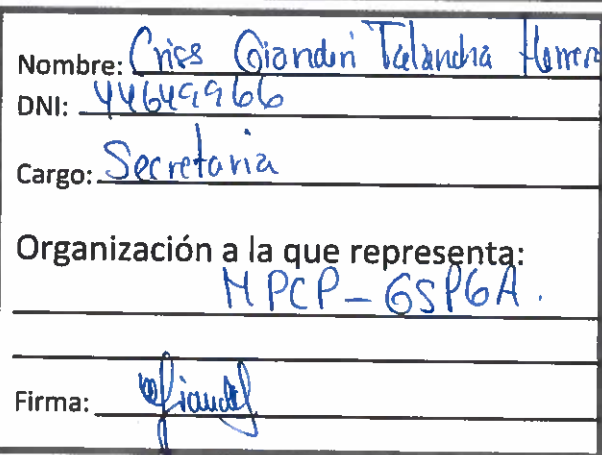 Nombre: Criss Giandiri Talancha Herrera
DNI: 44649966
Cargo: Secretaria
Organización a la que representa:
MPCP - GSPGA.
Firma: